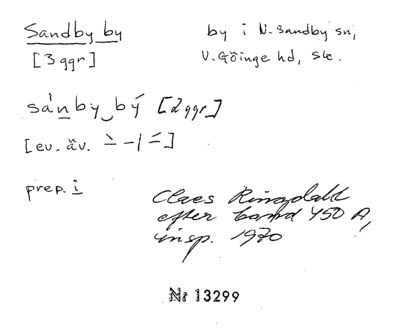 Sandby by
by i N. Sandby sn,
[3 ggr]
V. Göinge hd, Sk.
sánby‿bý [2 ggr]
[ev. äv. ∸ – | –́]
prep. i
Claes Ringdahl
efter band 450 A,
insp. 1970
Nr 13299